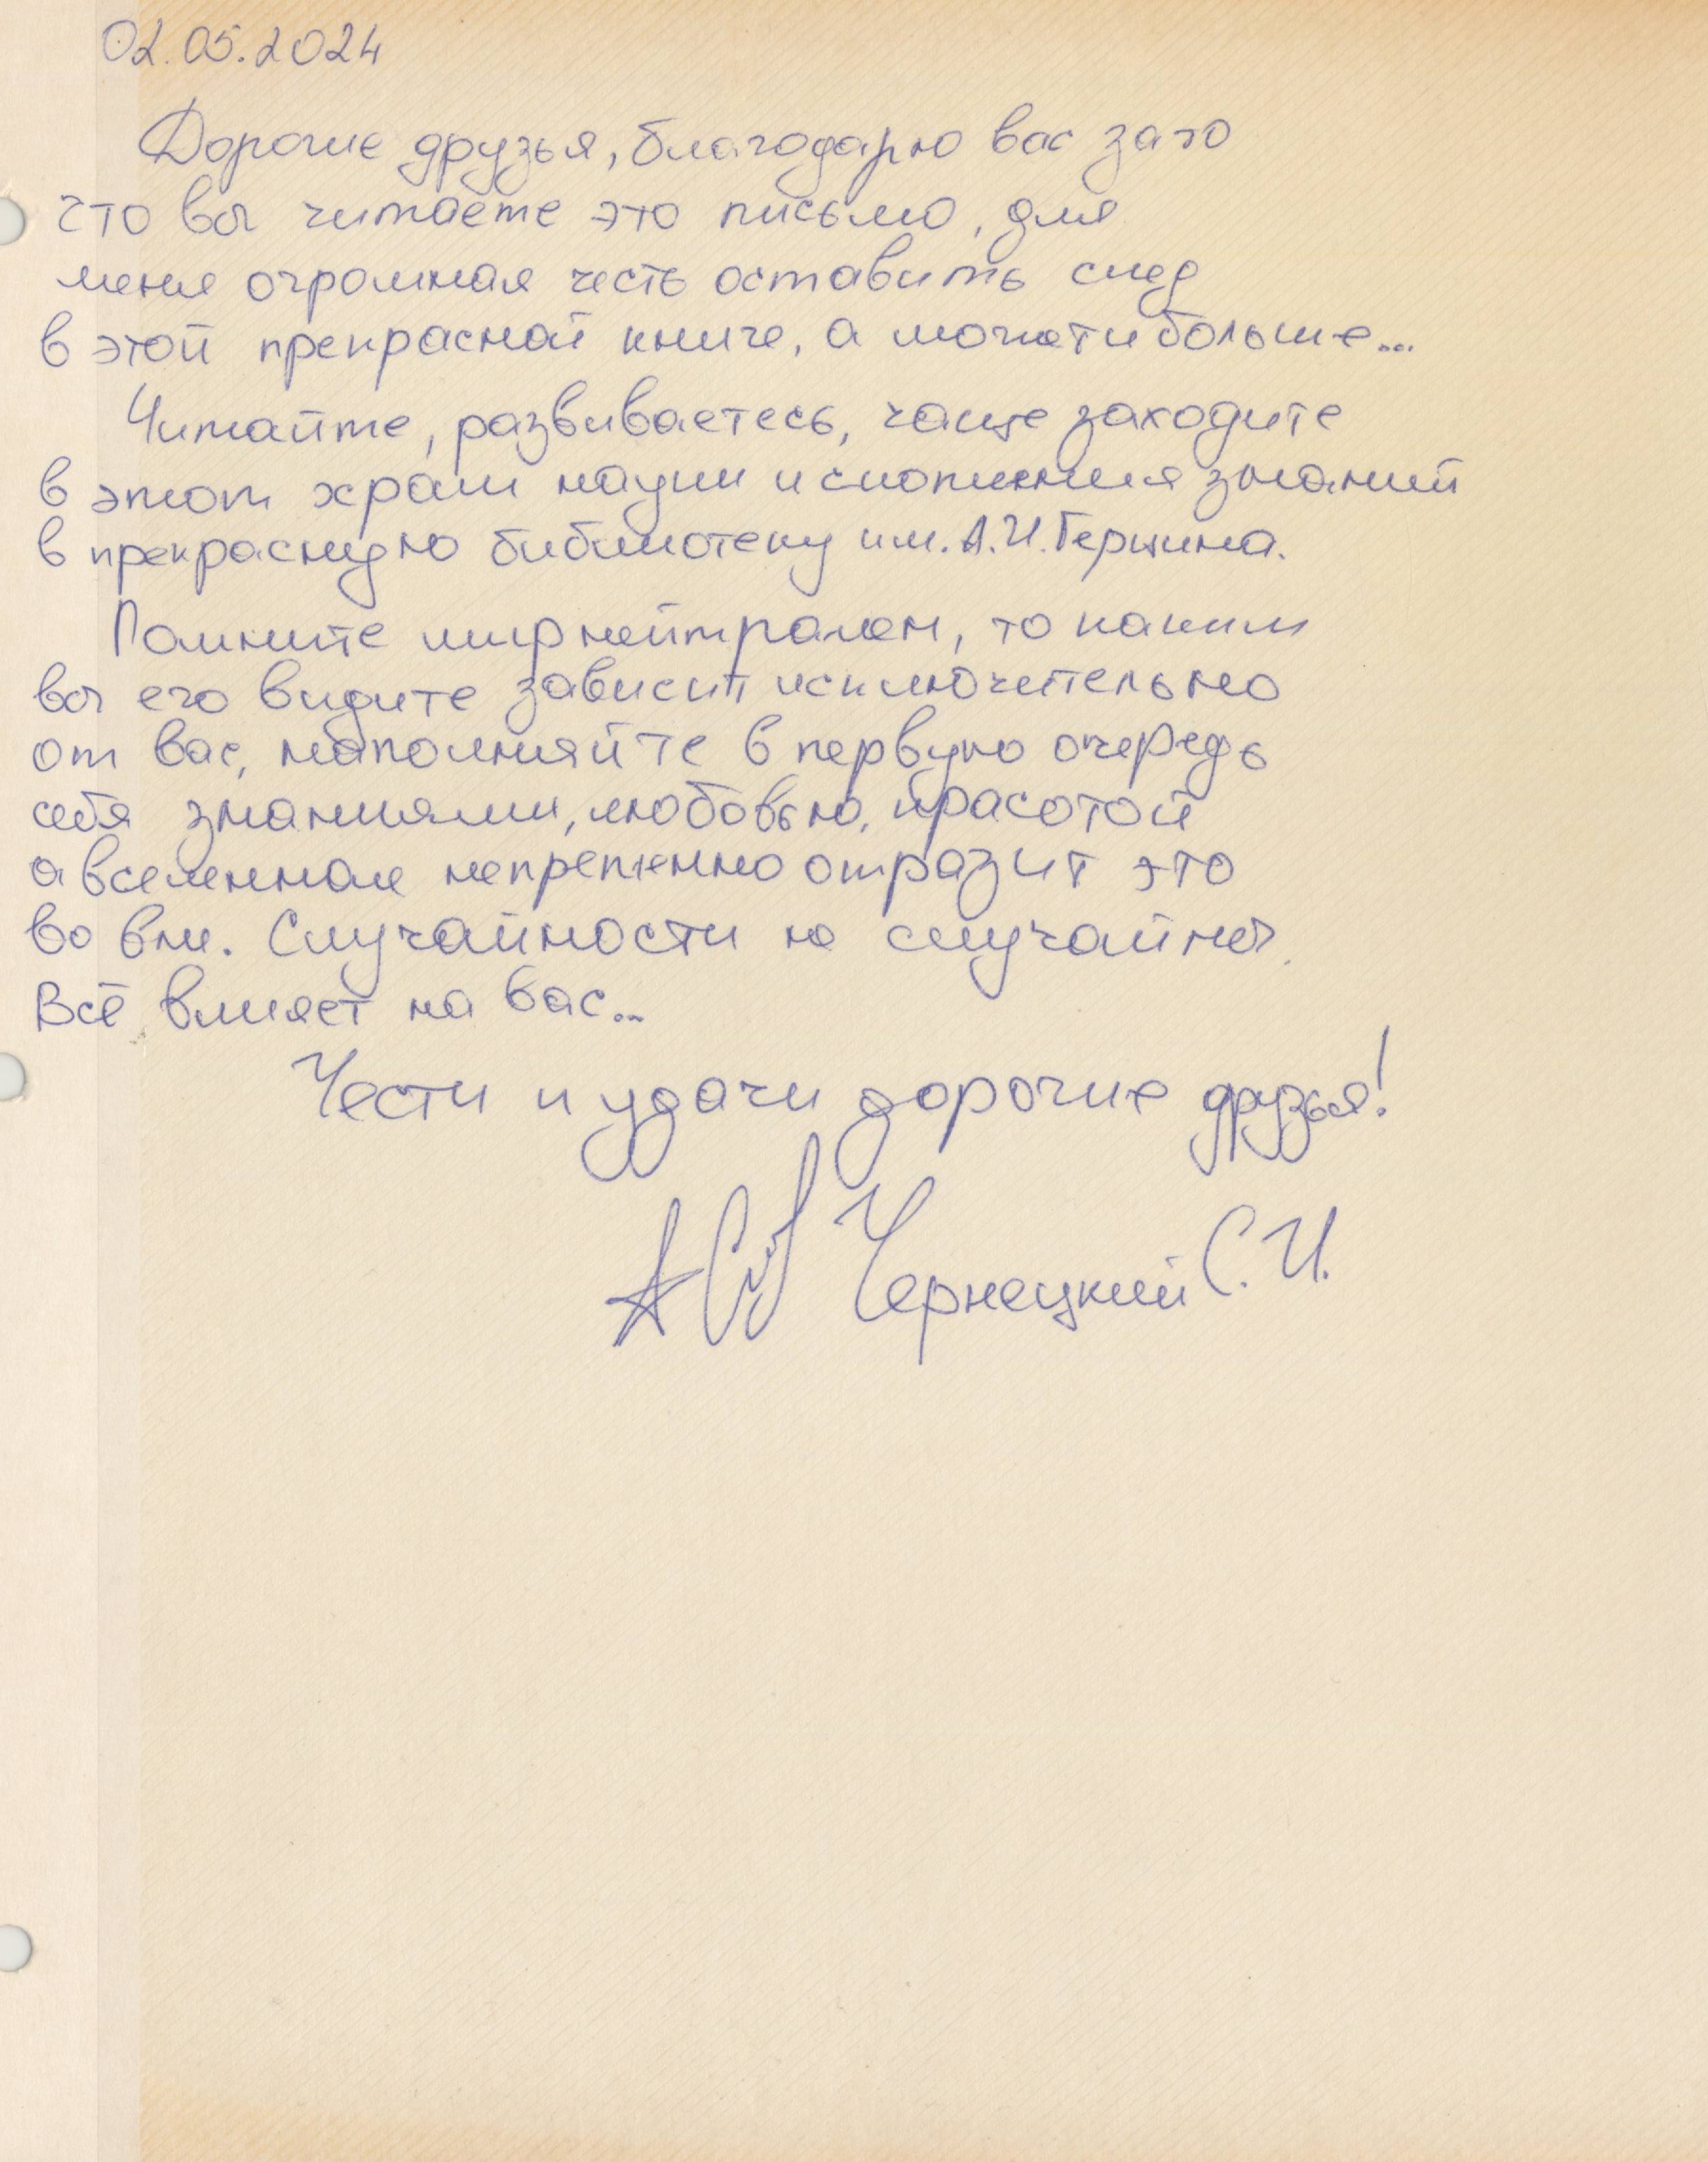 02.05.2024
Дорогие друзья, благодарю вас за то
что вы читаете это письмо, для
меня огромная честь оставить след
в этой прекрасной книге, а может и больше...
Читайте, развиваетесь, чаще заходите
в этот храм науки и скопления знаний
в прекрасную библиотеку им. А.И. Герцина.
Помните мир нейтрален, то каким
вы его видите зависит исключительно
от вас, наполняйте в первую очередь
себя знаниями, любовью, красотой
а вселенная непременно отразит это
во вне. Случайности не случайны.
Всё влияет на вас...
Чести и удачи дорогие друзья!
Чернецкий С.И.